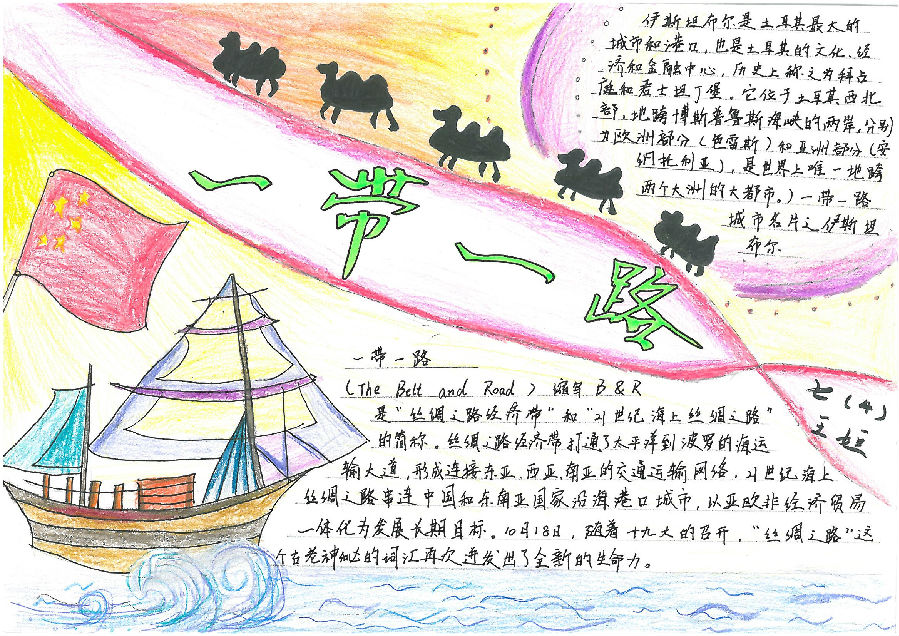 伊斯坦布尔是土耳其最大的
城市和港口，也是土耳其的文化、经
济和金融中心，历史上称之为拜占
庭和君士坦丁堡。它位于土耳其西北
部，地跨博斯普鲁斯海峡的两岸，分别
为欧洲部分（色雷斯）和亚洲部分（安
纳托利亚），是世界上唯一地跨
两个大洲的大都市。）一带一路
城市名片之伊斯坦
布尔
一带一路
一带一路
（The Belt and Road）缩写 B&R
是"丝绸之路经济带"和"21世纪海上丝绸之路"
的简称。丝绸之路经济带打通了太平洋到波罗的海运
输大道，形成连接东亚、西亚、南亚的交通运输网络，21世纪海上
丝绸之路串连中国和东南亚国家沿海港口城市，以亚欧非经济贸易
一体化为发展长期目标。10月18日，随着十九大的召开，"丝绸之路"这
个古老神秘的词汇再次迸发出了全新的生命力。
七（4）